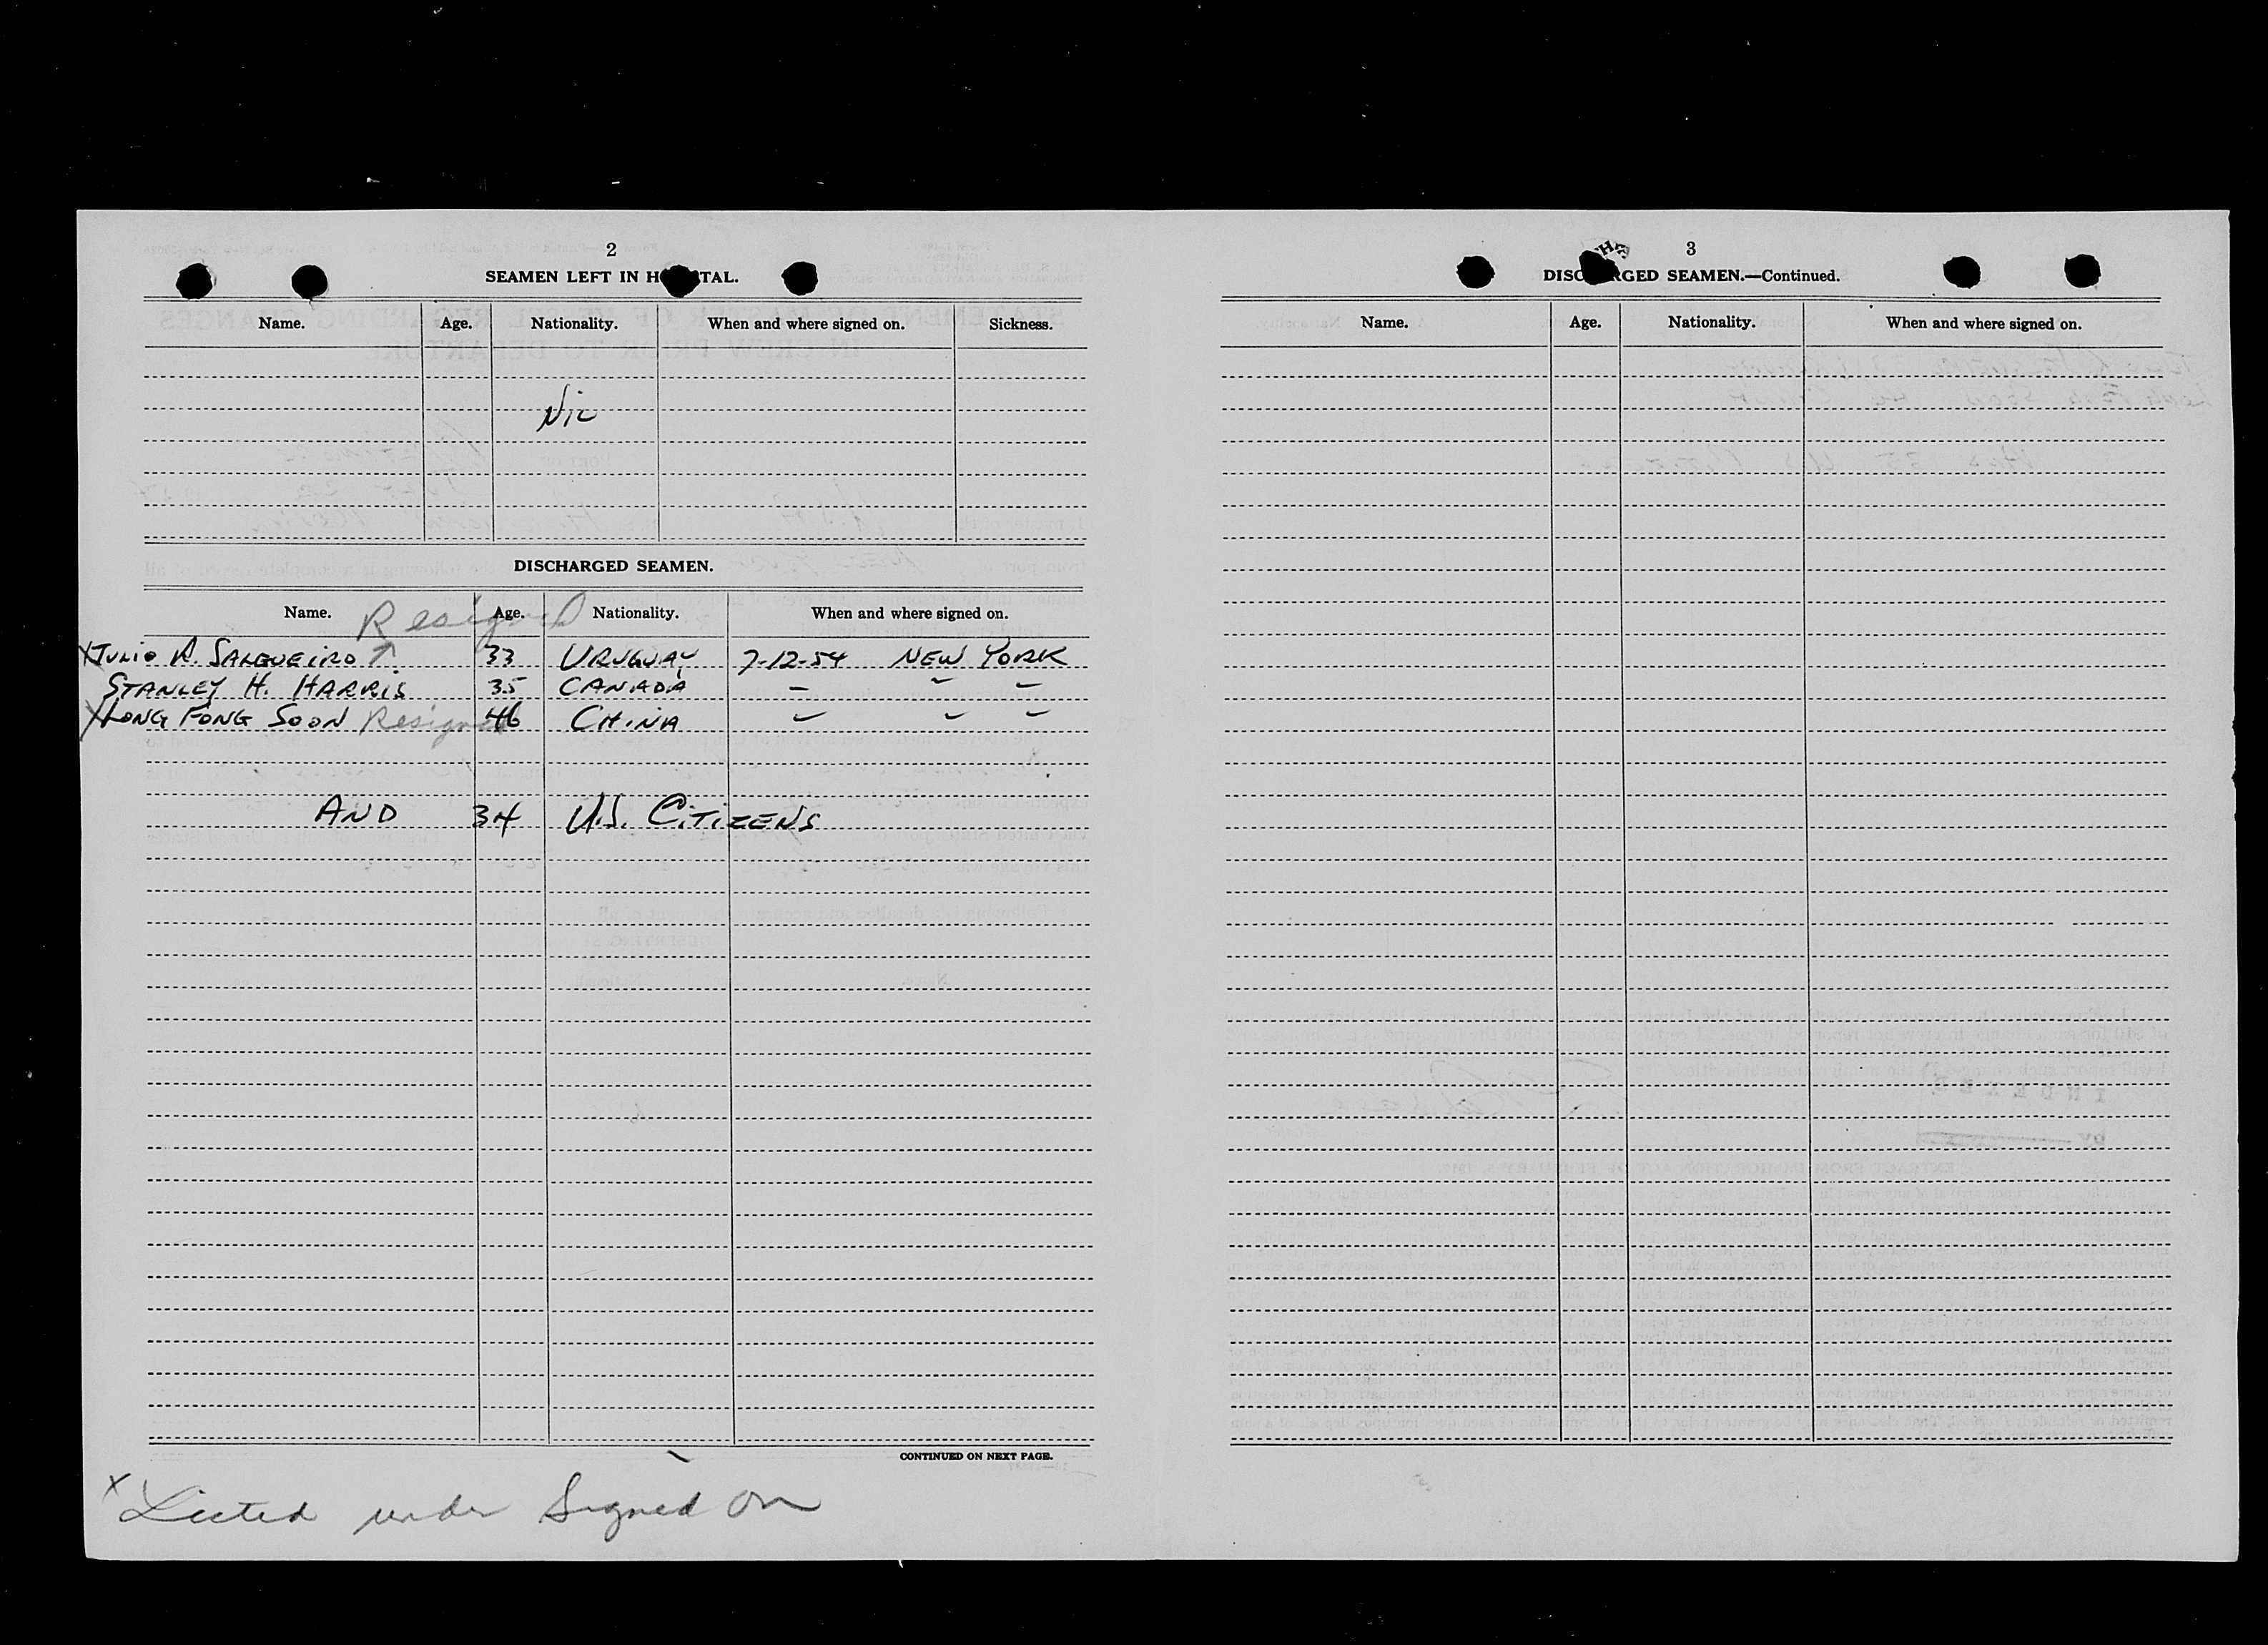 2
SEAMEN LEFT IN H TAL.
Name. Age. Nationality. When and where signed on. Sickness.
Nil
DISCHARGED SEAMEN.
Name. Age. Nationality. When and where signed on.
Resigned
X JULIO A. SALGUEIRO 33 URUGUAY 7-12-54 NEW YORK
STANLEY H. HARRIS 35 CANADA - - -
X LONG FONG SOON Resigned 46 CHINA - - -
AND 34 U.S. CITIZENS
CONTINUED ON NEXT PAGE.
X Listed under Signed on
3
DISC RGED SEAMEN.—Continued.
Name. Age. Nationality. When and where signed on.